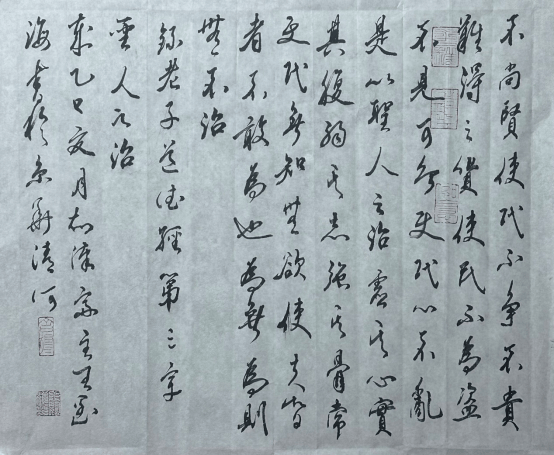 不尚賢使民不爭不貴
難得之貨使民不為盜
不見可欲使民心不亂
是以聖人之治虛其心實
其腹弱其志強其骨常
使民無知無欲使夫智
者不敢為也為無為則
無不治
錄老子道德經第三章
聖人之治
歲乙巳夏月齋主
海書於京華清河